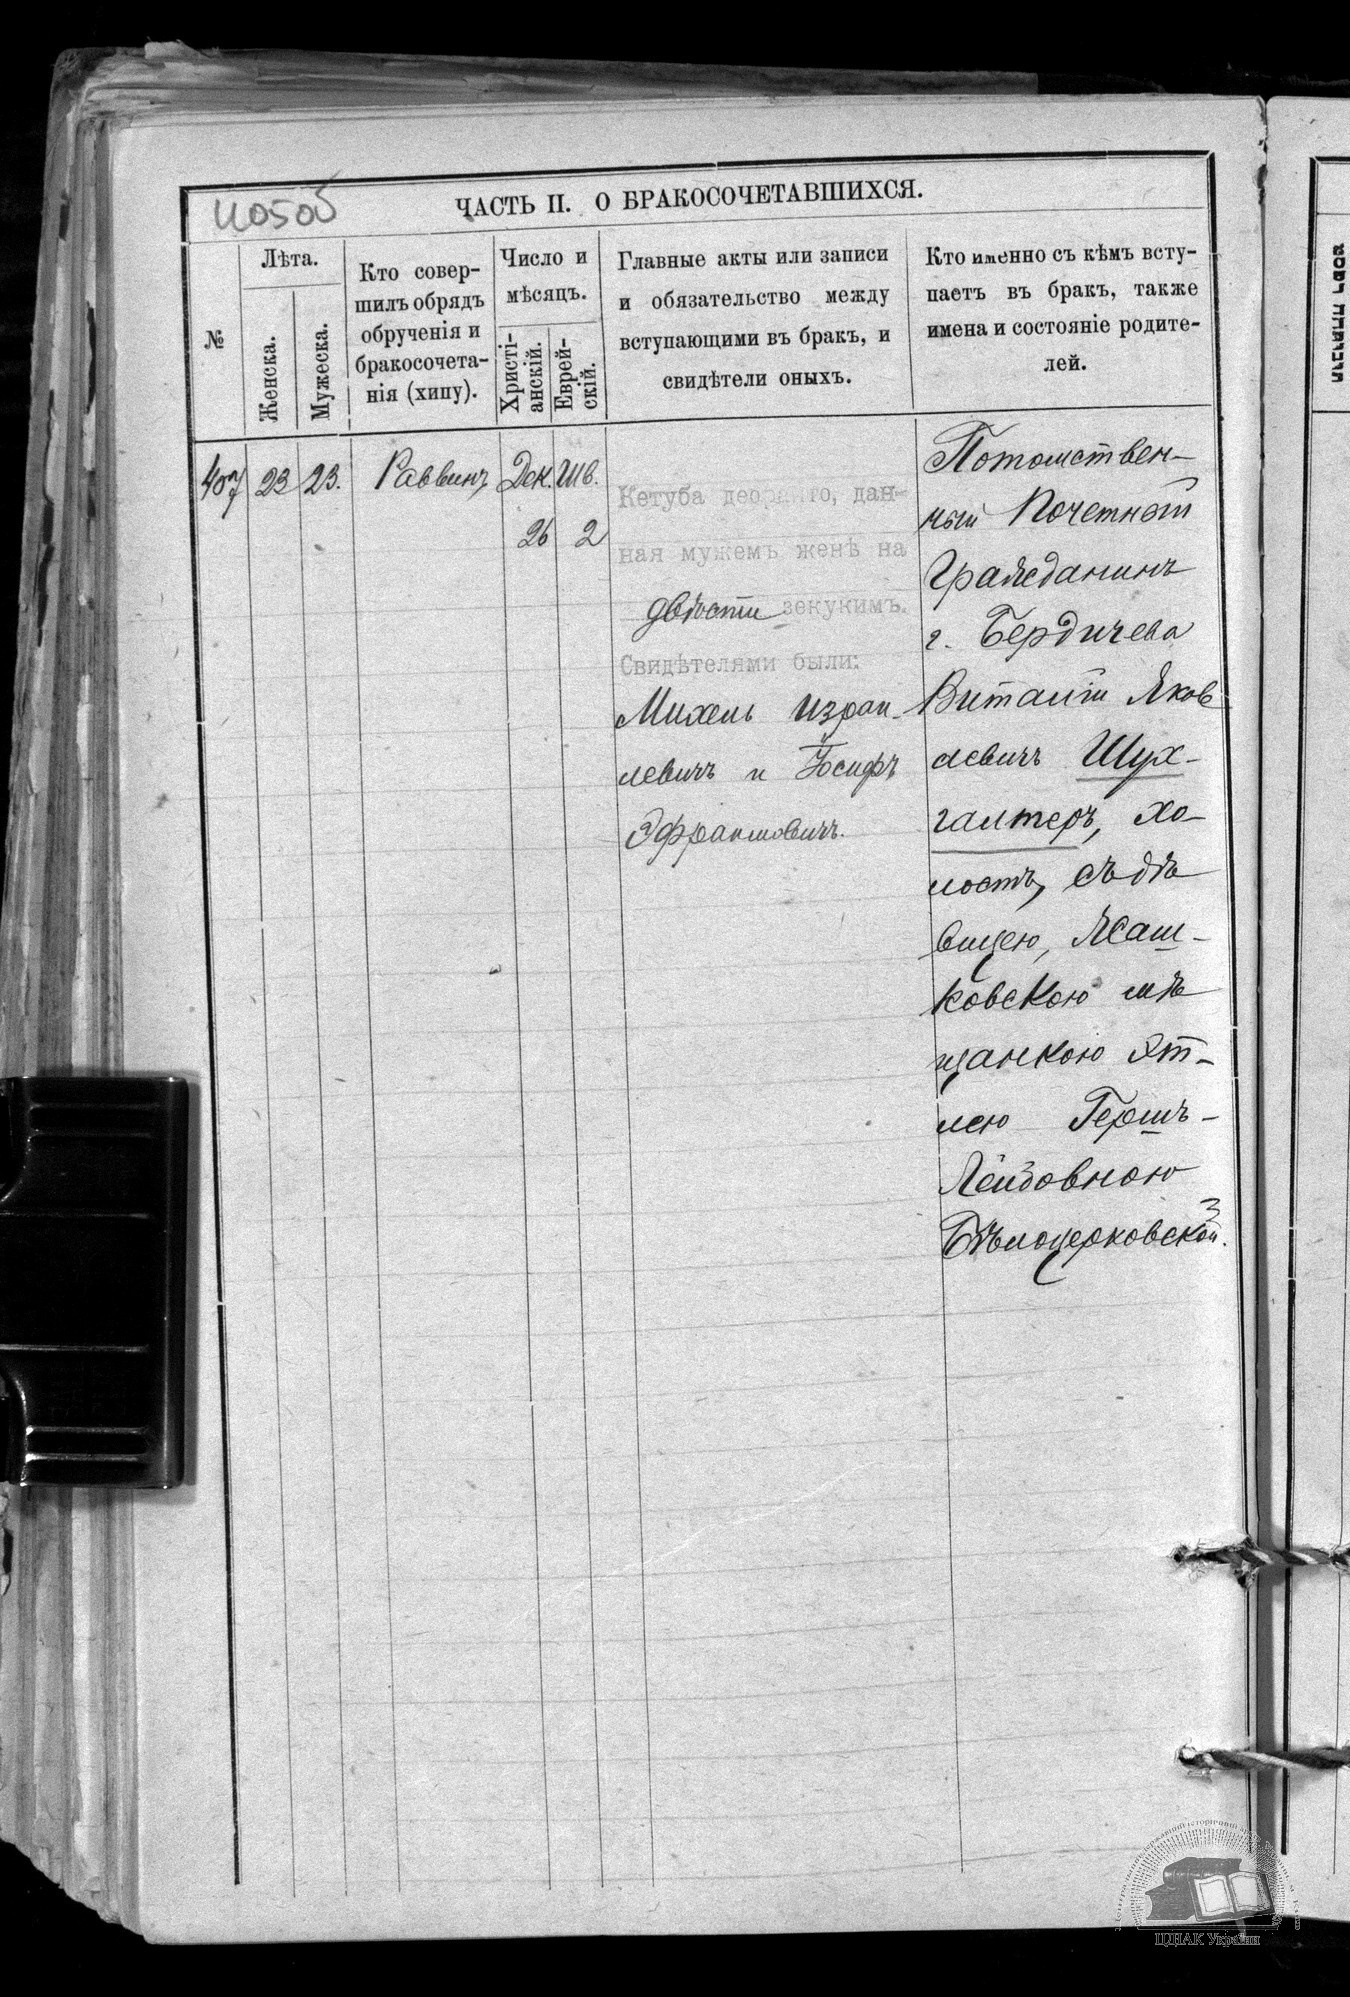 юдо​б
ЧАСТЬ II. О БРАКОСОЧЕТАВШИХСЯ.
№
Лѣта.
Женска.
Мужеска.
Кто совер-
шилъ обрядъ
обрученія и
бракосочета-
нія (хипу).
Число и
мѣсяцъ.
Христі-
анскій.
Еврей-
скій.
Главные акты или записи
и обязательство между
вступающими въ бракъ, и
свидѣтели оныхъ.
Кто именно съ кѣмъ всту-
паетъ въ бракъ, также
имена и состояніе родите-
лей.
407
23
23.
Раввинъ
Дек.
26
Шв.
2
Кетуба деорайто, дан-
ная мужемъ женѣ на
двѣсти зекукимъ.
Свидѣтелями были:
Михель Израи-
левичъ и Іосифъ
Эфраимовичъ.
Потомствен-
ный Почетный
Гражданинъ
г. Бердичева
Виталій Яков
левичъ Шух-
галтеръ, хо-
лостъ, съ дѣ
вицею, Жаш-
ковскою мѣ
щанкою Эт-
лею Гершъ-
Лейбовною
Бѣлоцерковской.
ЦДІАК України